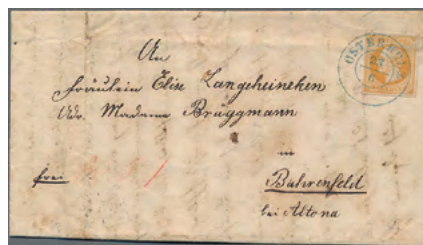 OSTERHOLZ
23
6
An
Fräulein Elise Langeheineken
Adr. Madame Brüggmann
in
frei
Bahrenfeld
bei Altona